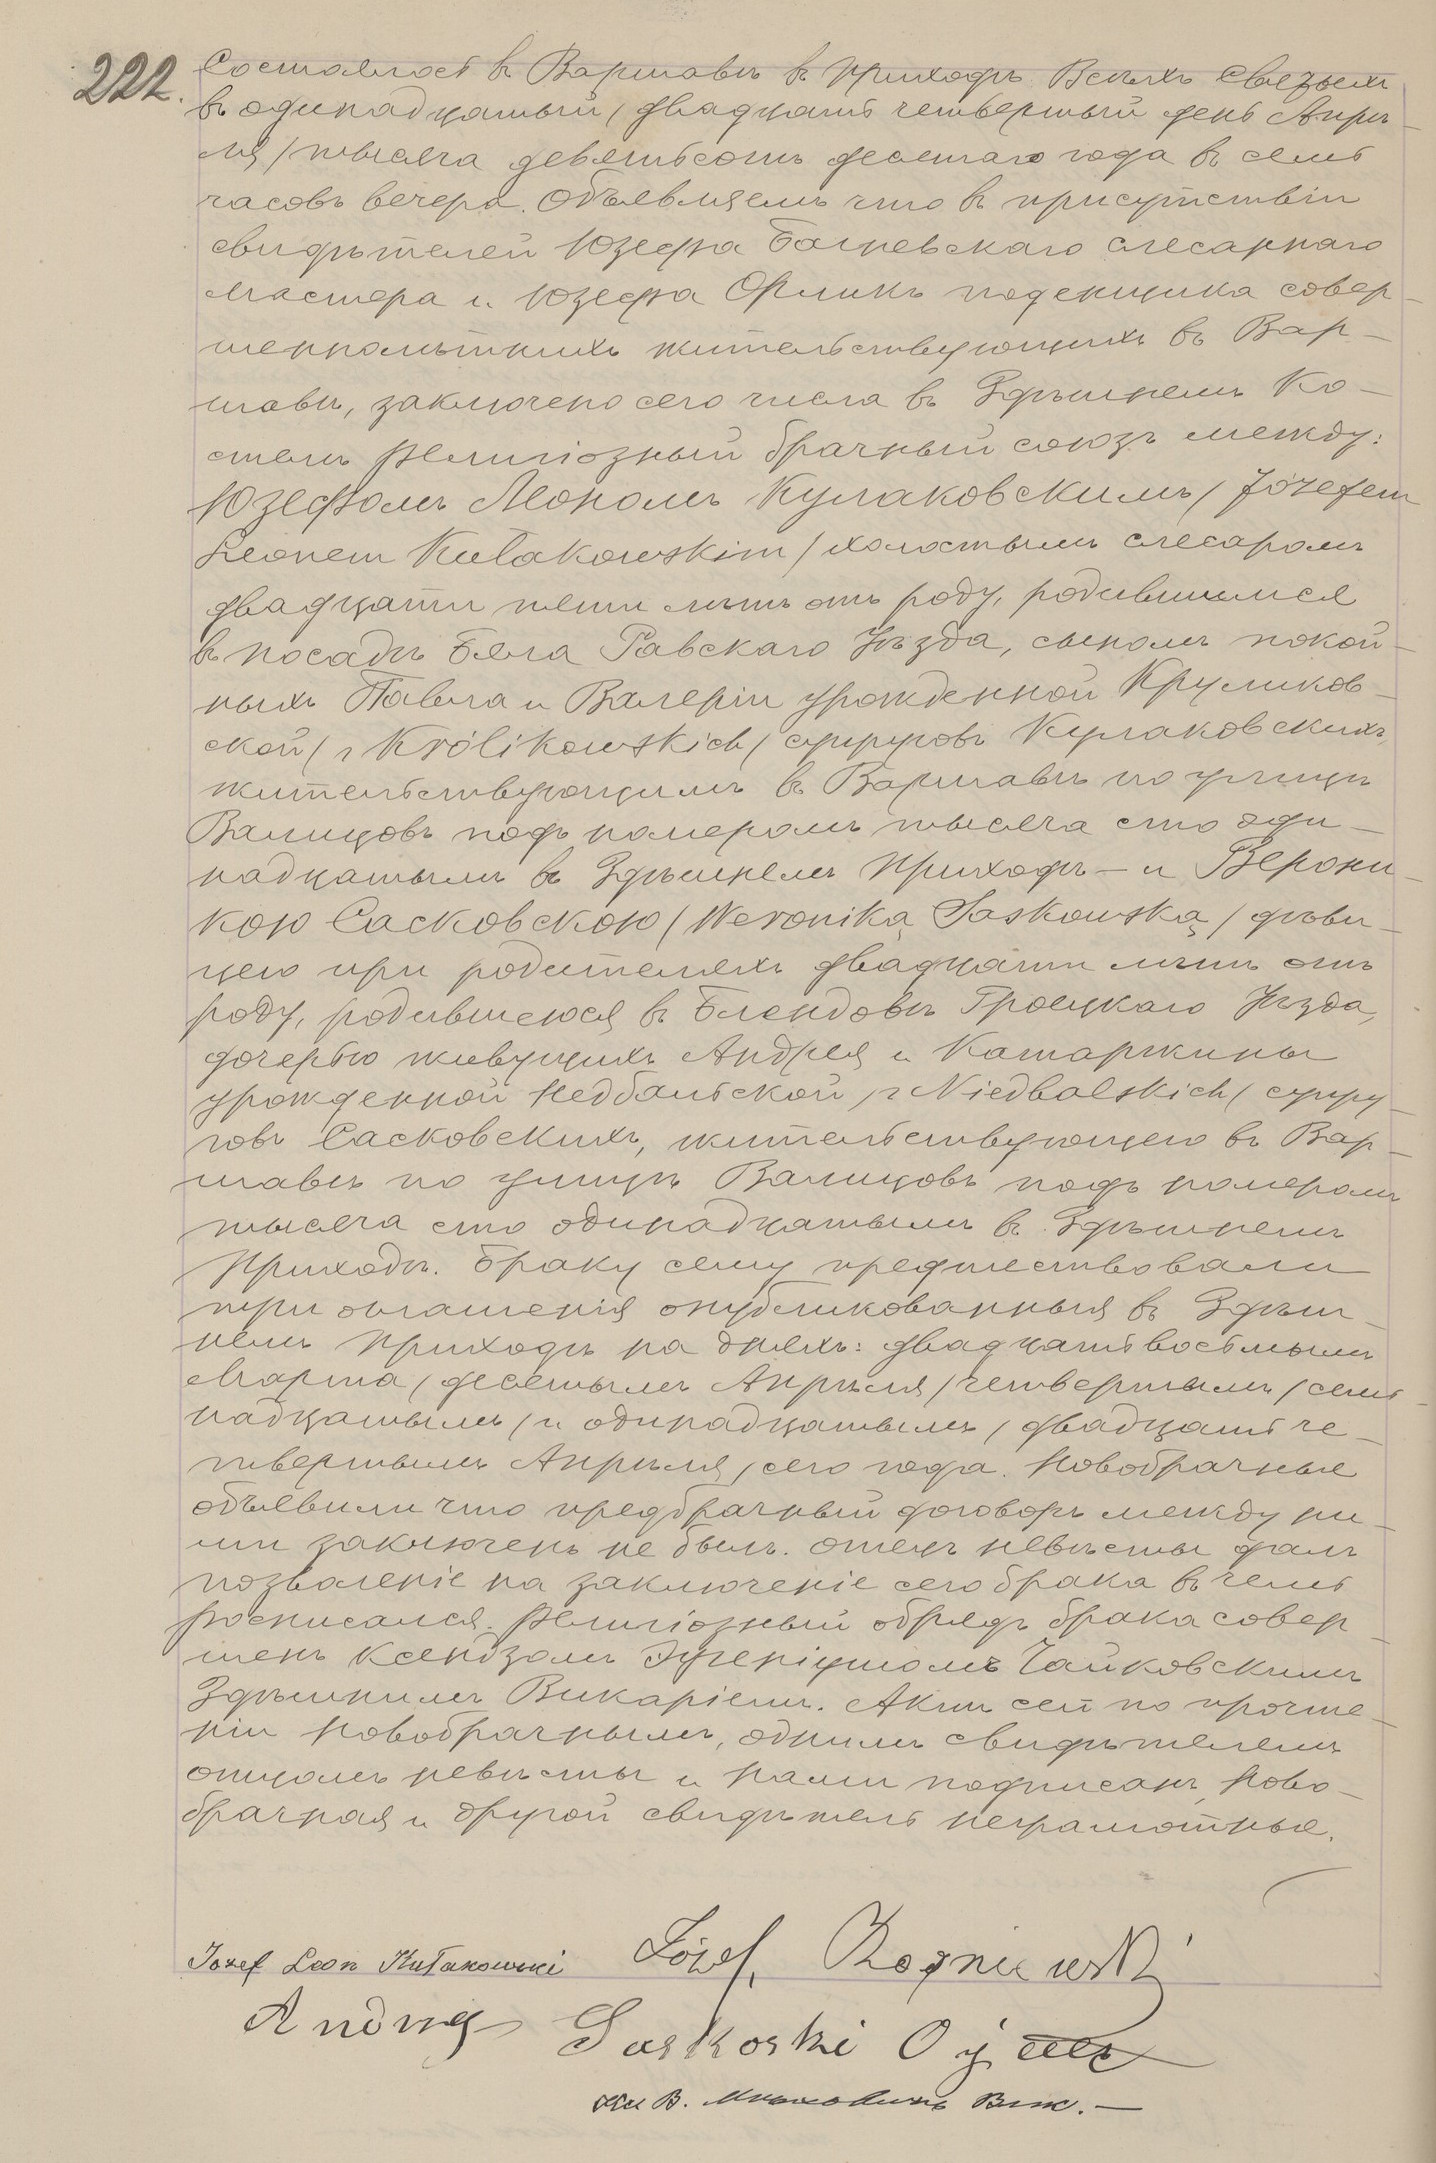 222.
Состоялось въ Варшавѣ въ приходѣ Всѣхъ Святыхъ
въ одинадцатый / двадцать четвертый день Апрѣ-
ля / тысяча девятьсотъ десятаго года въ семь
часовъ вечера. Объявляемъ что въ присутствіи
свидѣтелей Юзефа Багневскаго слесарнаго
мастера и Юзефа Орликъ поденщика совер-
шеннолѣтнихъ жительствующихъ въ Вар-
шавѣ, заключено сего числа въ Здѣшнемъ Ко-
стелѣ религіозный брачный союзъ между:
Юзефомъ Леономъ Кулаковскимъ / Józefem
Leonem Kułakowskim / холостымъ слесаромъ
двадцати пяти лѣтъ отъ роду, родившимся
въ посадѣ Бяла Равскаго Уѣзда, сыномъ покой-
ныхъ Павла и Валеріи урожденной Круликов-
ской / z Królikowskich / супруговъ Кулаковскихъ,
жительствующимъ въ Варшавѣ по улицѣ
Валицовъ подъ номеромъ тысяча сто оди-
надцатымъ въ Здѣшнемъ приходѣ — и Верони-
кою Сасковскою / Weroniką Saskowską / дѣви-
цею при родителяхъ двадцати лѣтъ отъ
роду, родившеюся въ Блендовѣ Гроецкаго Уѣзда,
дочерью живущихъ Андрея и Катаржины
урожденной Недбальской / z Niedbalskich / супру-
говъ Сасковскихъ, жительствующею въ Вар-
шавѣ по улицѣ Валицовъ подъ номеромъ
тысяча сто одинадцатымъ въ Здѣшнемъ
приходѣ. Браку сему предшествовали
три оглашенія опубликованныя въ Здѣш-
немъ приходѣ на дняхъ: двадцать восьмымъ
Марта / десятымъ Апрѣля / четвертымъ / сем-
надцатымъ / и одинадцатымъ / двадцать че-
твертымъ Апрѣля / сего года. Новобрачные
объявили что предбрачный договоръ между ни-
ми заключенъ не былъ. Отецъ невѣсты далъ
позволеніе на заключеніе сего брака въ чемъ
росписался. Религіозный обрядъ брака совер-
шенъ Ксендзомъ Эугеніушомъ Чайковскимъ
Здѣшнимъ Викаріемъ. Актъ сей по прочте-
ніи новобрачнымъ, однимъ свидѣтелемъ
отцомъ невѣсты и нами подписанъ, ново-
брачная и другой свидѣтель неграмотные.
Jozef Leon Kułakowski Józef Bagniewski
Andrzej Saskoski Ojciec
Кс В. Вик. —